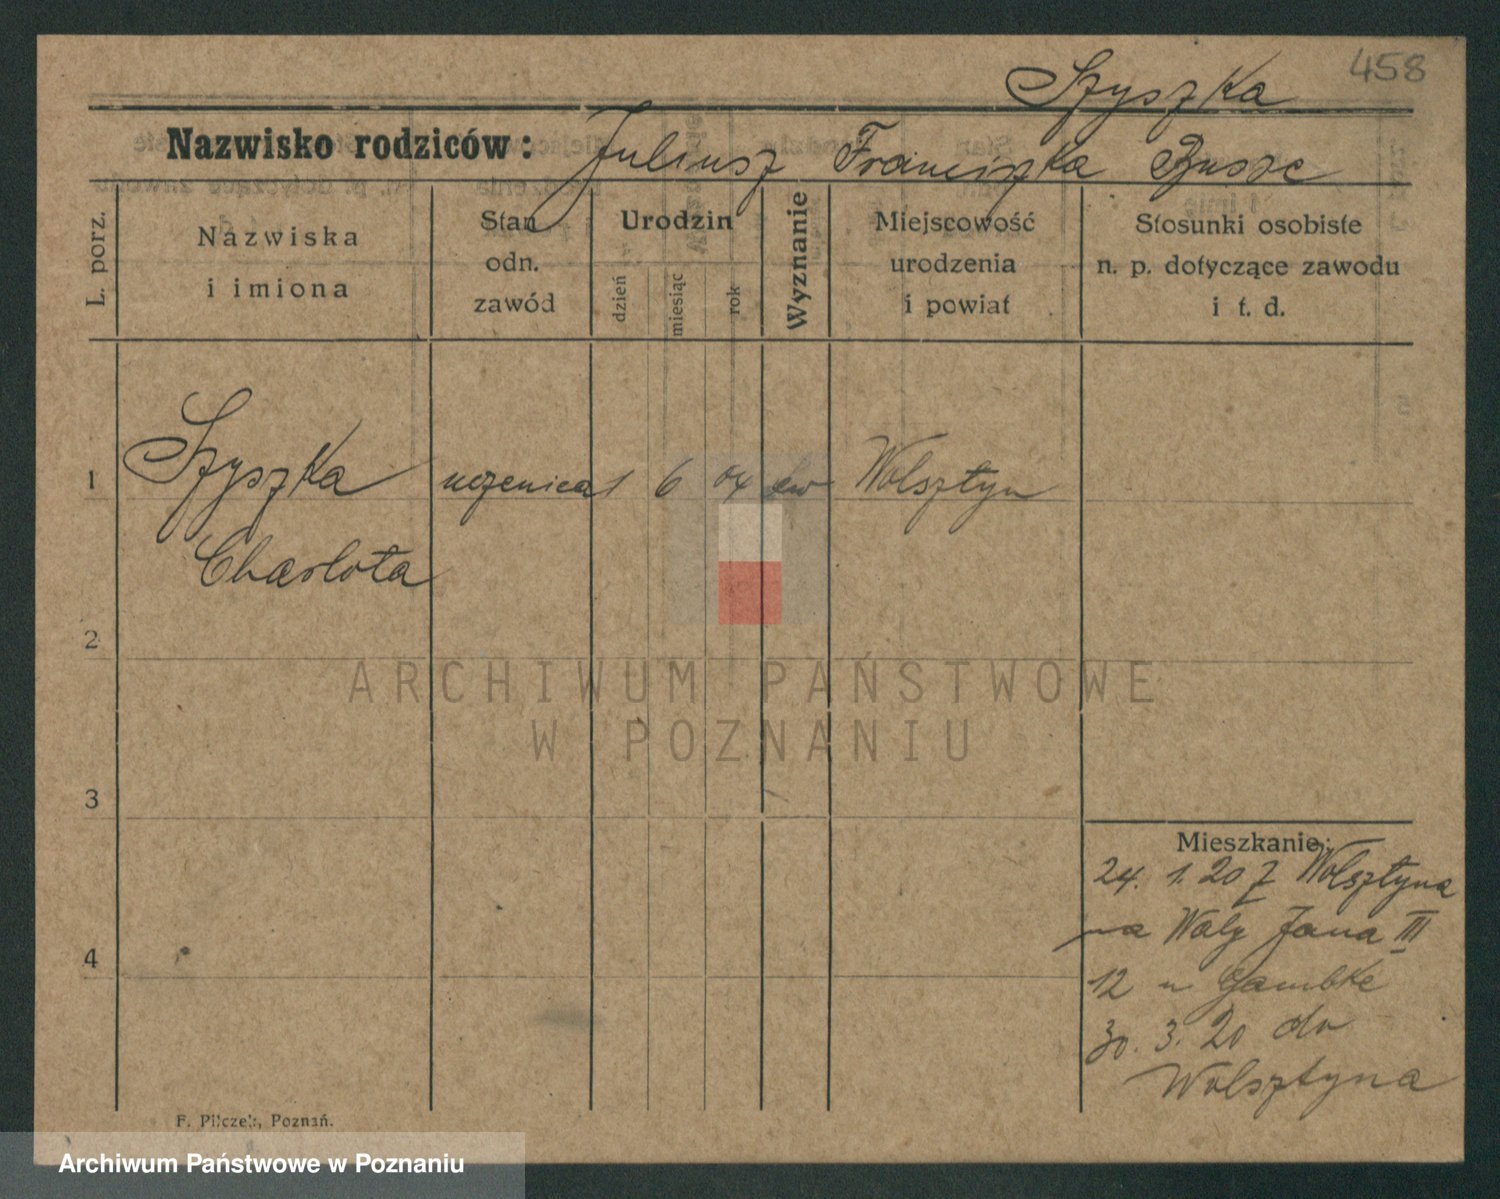 458
Szyszka
Nazwisko rodziców: Juliusz Franciszka Busse
L. porz.
Nazwiska
i imiona
Stan
odn.
zawód
Urodzin
dzień
miesiąc
rok
Wyznanie
Miejscowość
urodzenia
i powiat
Stosunki osobiste
n. p. dotyczące zawodu
i t. d.
1 Szyszka uczenica 1 6 04 ew Wolsztyn
Charlota
2
3
4
Mieszkanie:
24. 1. 20 z Wolsztyna
na Wały Jana III
12 u Gambke
30. 3. 20 do
Wolsztyna
F. Pilczek, Poznań.
ARCHIWUM PAŃSTWOWE
W POZNANIU
Archiwum Państwowe w Poznaniu